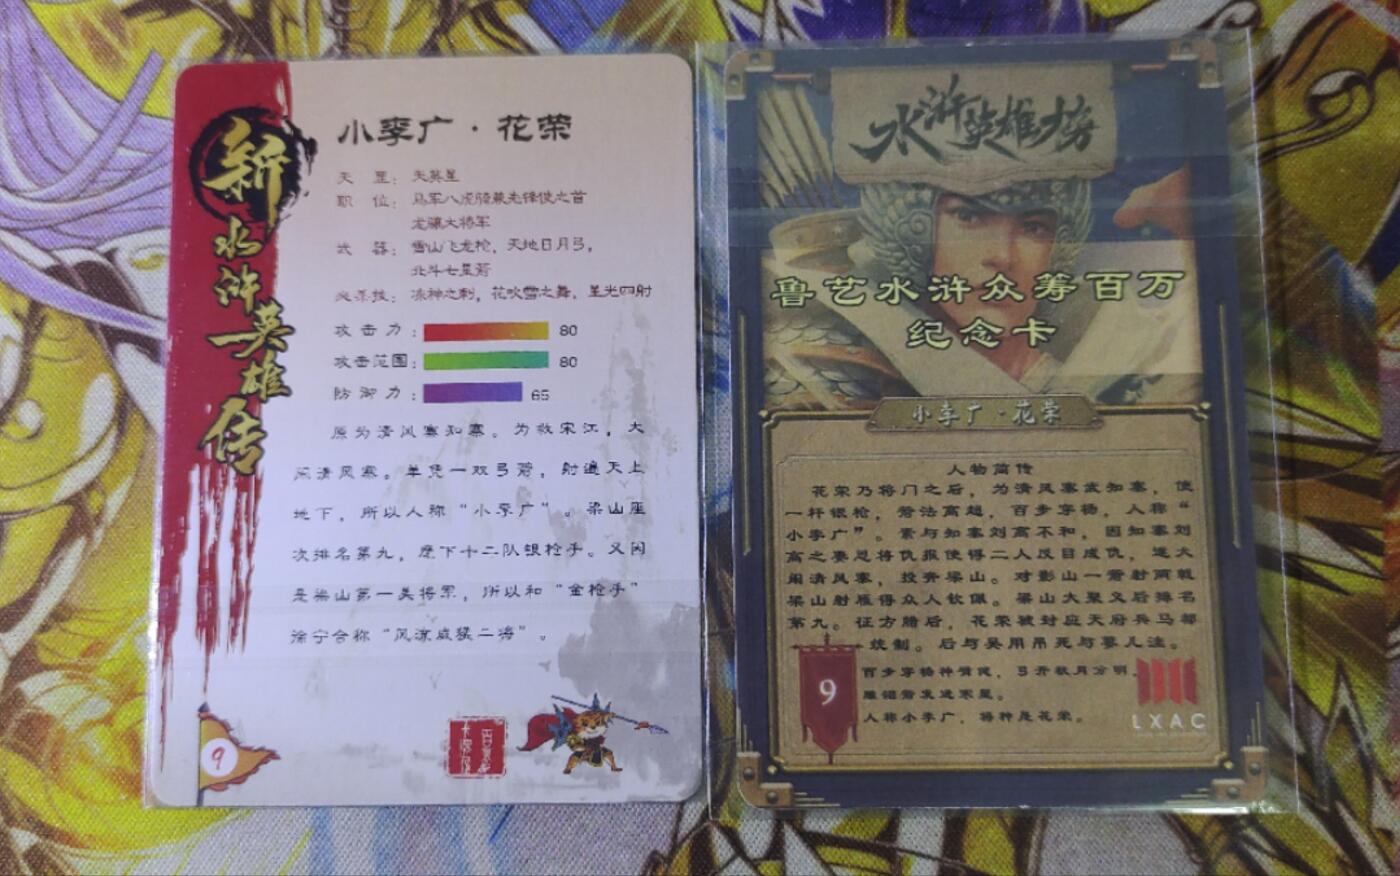 新水浒英雄传
小李广·花荣
天 星：天英星
职 位：马军八虎骑兼先锋使之首
龙骧大将军
武 器：雪山飞龙枪，天地日月弓，
北斗七星箭
必杀技：冻神之刺，花吹雪之舞，星光四射
攻 击 力：80
攻击范围：80
防 御 力：65
原为清风寨知寨。为救宋江，大
闹清风寨。单凭一双弓箭，射遍天上
地下，所以人称“小李广”。梁山座
次排名第九，麾下十二队银枪手。又因
是梁山第一美将军，所以和“金枪手”
徐宁合称“风凉威猛二海”。
9
水浒英雄榜
鲁艺水浒众筹百万
纪念卡
小李广·花荣
人物简传
花荣乃将门之后，为清风寨武知寨，使
一杆银枪，箭法高超，百步穿杨，人称“
小李广”。素与知寨刘高不和，因知寨刘
高之妻恩将仇报使得二人反目成仇，遂大
闹清风寨，投奔梁山。对影山一箭射两戟
梁山射雁得众人钦佩。梁山大聚义后排名
第九。征方腊后，花荣被封应天府兵马都
统制。后与吴用吊死与蓼儿洼。
百步穿杨神臂健，弓开秋月分明，
雕翎箭发迸寒星。
人称小李广，将种是花荣。
9
LXAC